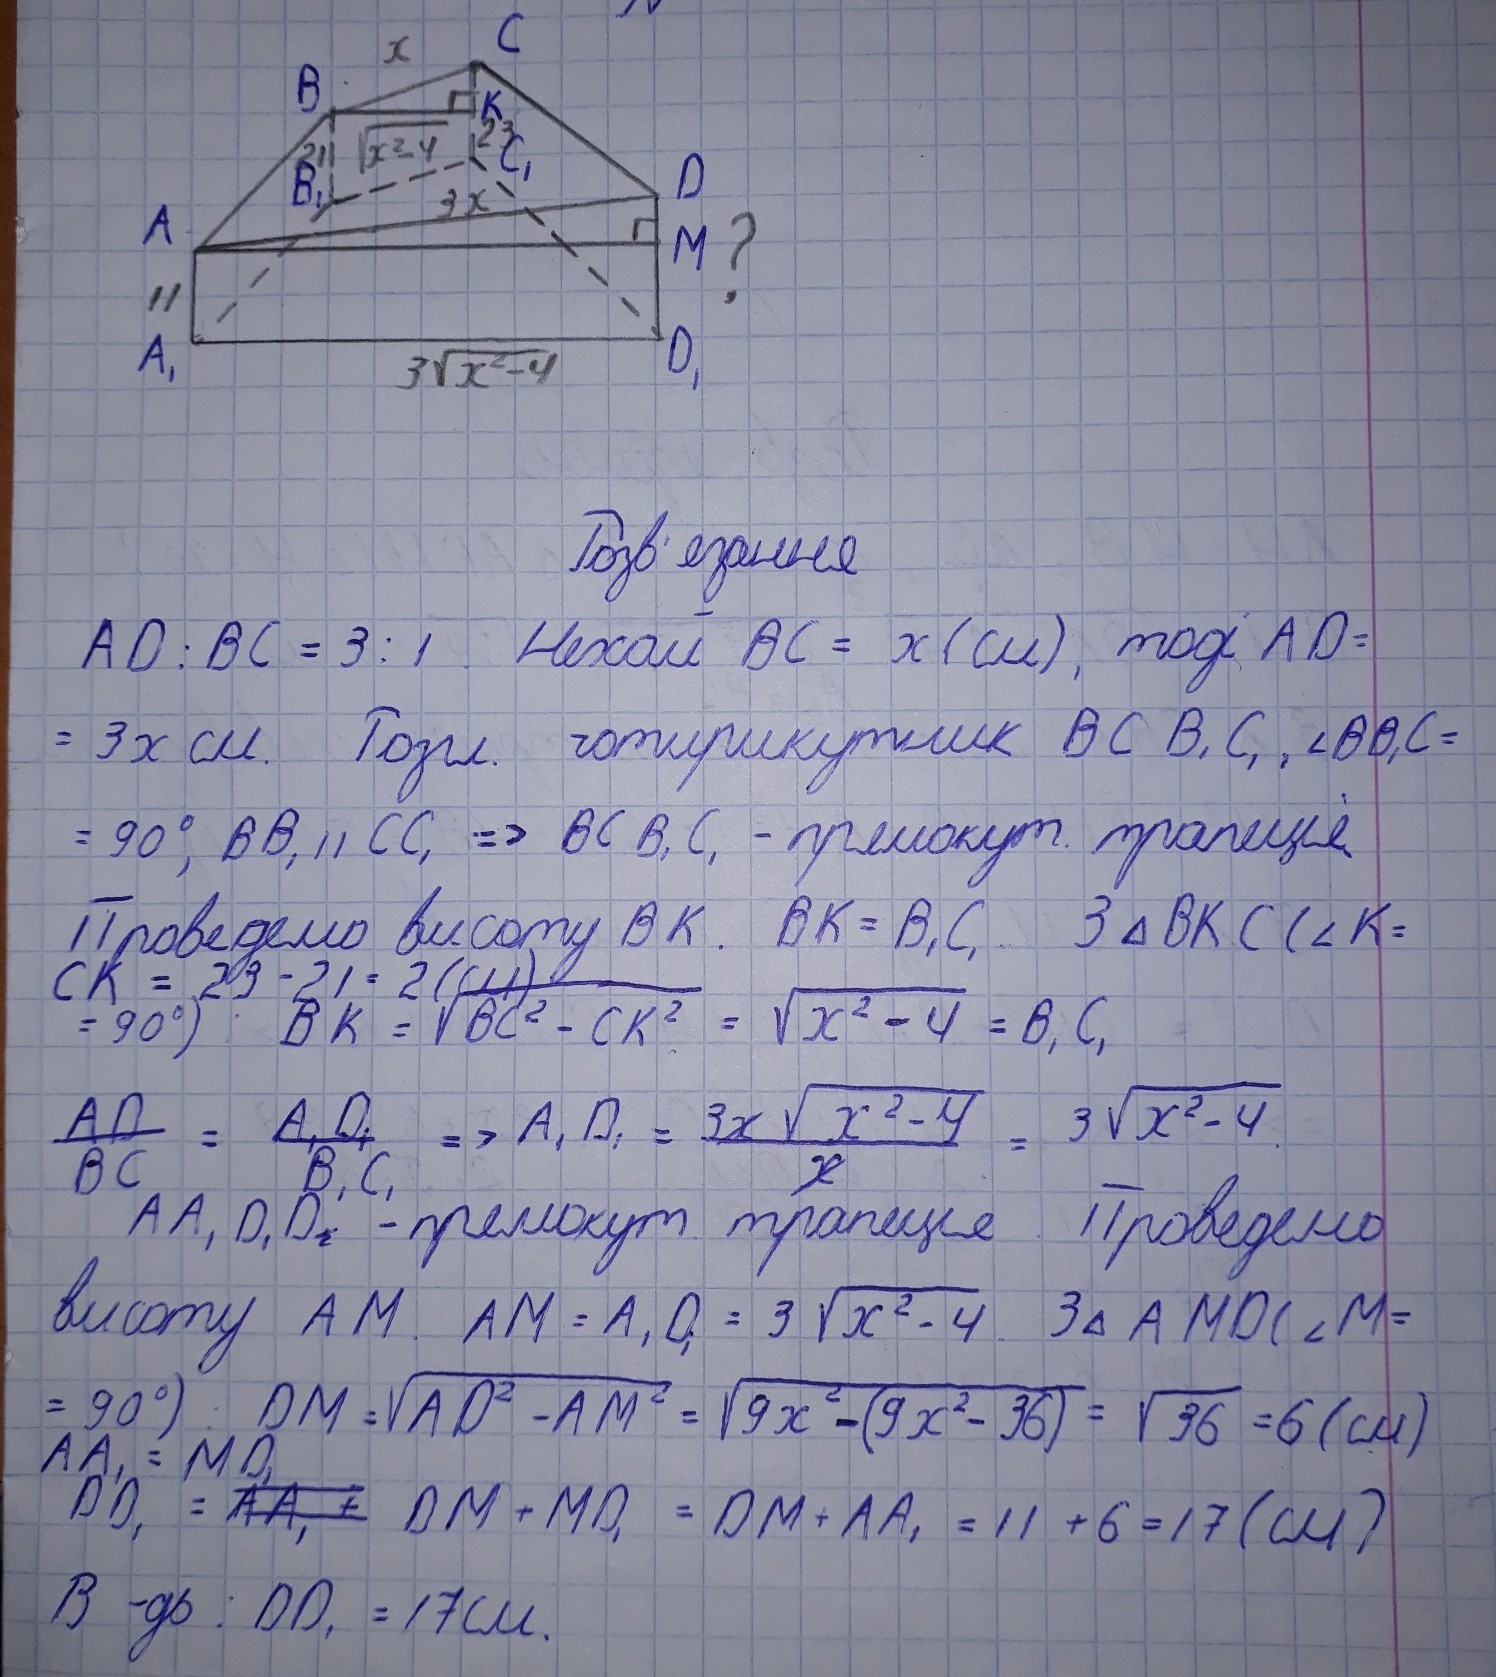 x
C
B
K
21
√x²-4
23
C₁
B₁
3x
D
A
M
?
11
A₁
3√x²-4
D₁
Розв'язання
AD : BC = 3 : 1. Нехай BC = x (см), тоді AD =
= 3x см. Розгл. чотирикутник BCB₁C₁, ∠BB₁C =
= 90°, BB₁ || CC₁ => BCB₁C₁ - прямокут. трапеція
Проведемо висоту BK. BK = B₁C₁. З △BKC (∠K =
CK = 23 - 21 = 2 (см)
= 90°) : BK = √BC² - CK² = √x² - 4 = B₁C₁
AD/BC = A₁D₁/B₁C₁ => A₁D₁ = 3x√x²-4/x = 3√x²-4.
AA₁D₁D - прямокут. трапеція. Проведемо
висоту AM. AM = A₁D₁ = 3√x²-4. З △AMD (∠M =
= 90°) : DM = √AD² - AM² = √9x² - (9x² - 36) = √36 = 6 (см)
AA₁ = MD₁
DD₁ = AA₁ + DM + MD₁ = DM + AA₁ = 11 + 6 = 17 (см)
В-дь : DD₁ = 17 см.